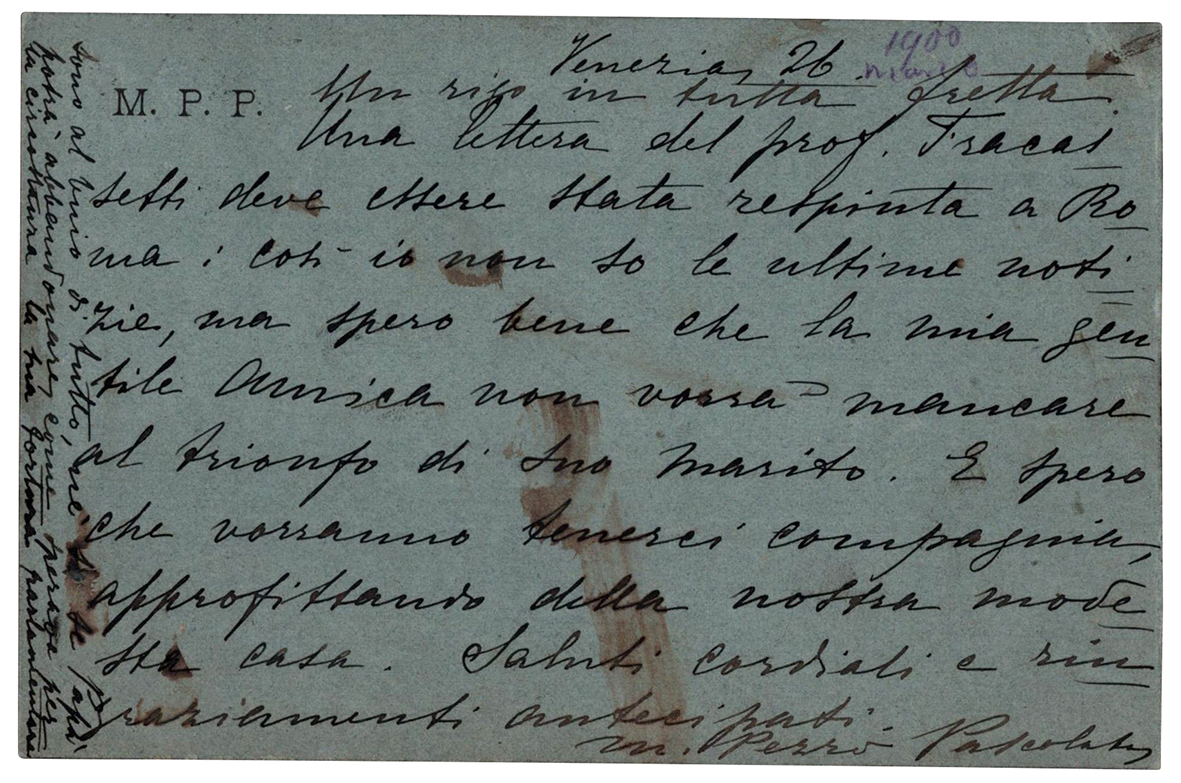 Venezia, 26
1900
marzo
M. P. P.
Un rigo in tutta fretta.
Una lettera del prof. Fracas
setti deve essere stata respinta a Ro
ma: così io non so le ultime noti
zie, ma spero bene che la mia gen
tile Amica non vorrà mancare
al trionfo di suo Marito. E spero
che vorranno tenerci compagnia,
approfittando della nostra mode
sta casa. Saluti cordiali e rin
raziamenti antecipati.
M. Pezzè Pascolato
sono al buio di tutto, nè so se Papà
potrà abbandonare, come persava per
la circostanza la sua parlamentare